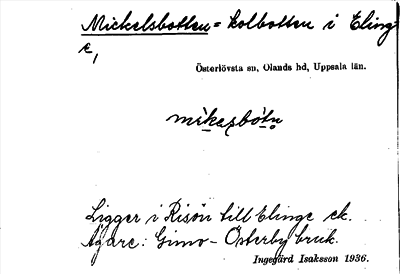 Mickelsbotten = kolbotten i Elinge
Österlövsta sn, Olands hd, Uppsala län.
Ligger i Risön till Elinge ek.
Ägare: Gimo-Österby bruk.
Ingegärd Isaksson 1936.